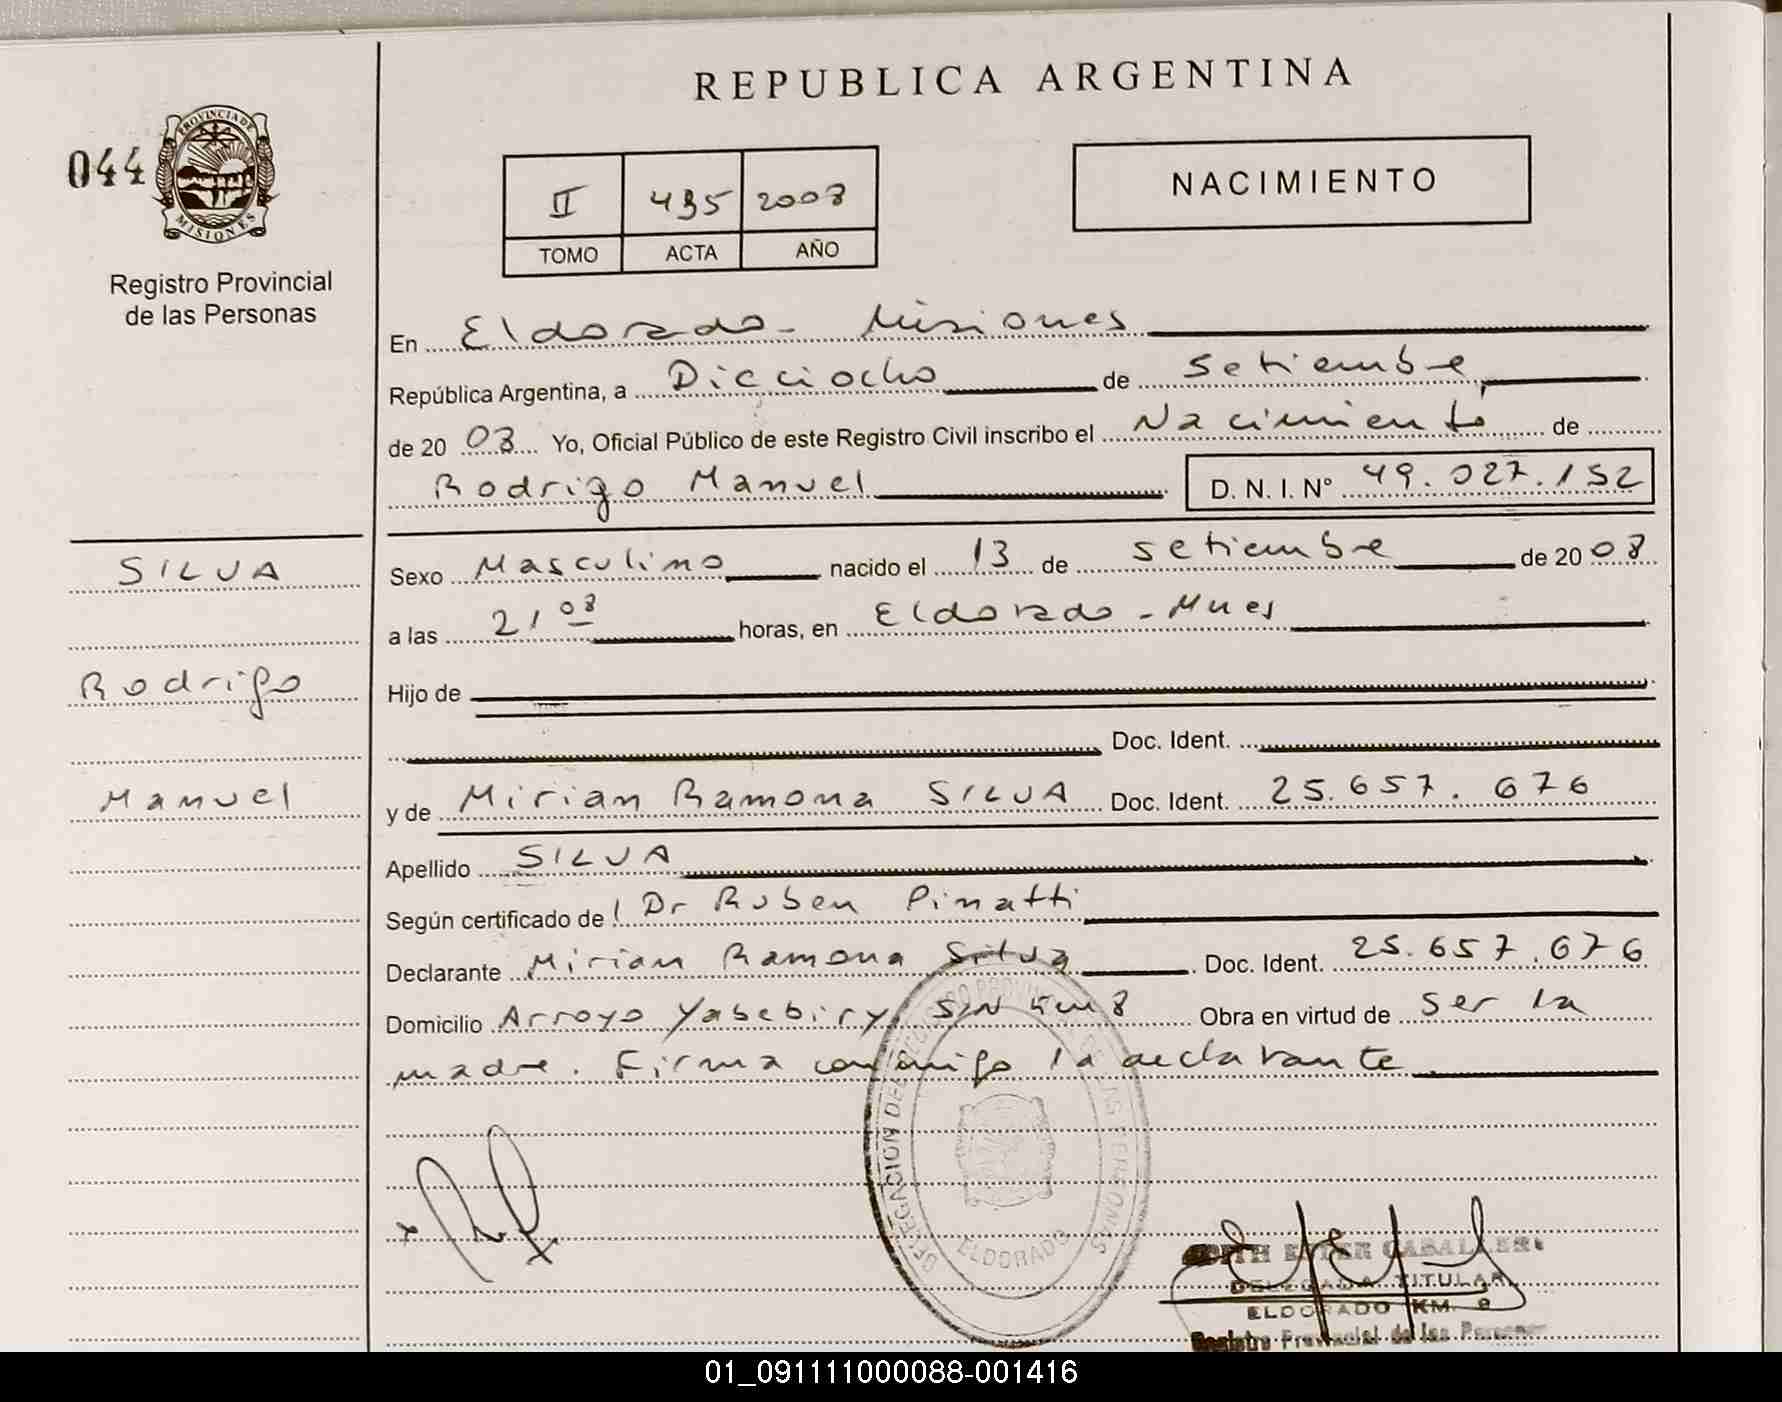 REPUBLICA ARGENTINA
044
PROVINCIA DE
MISIONES
Registro Provincial
de las Personas
II 435 2008
TOMO ACTA AÑO
NACIMIENTO
En Eldorado - Misiones
República Argentina, a Dieciocho de setiembre
de 20 08 Yo, Oficial Público de este Registro Civil inscribo el Nacimiento de
Rodrigo Manuel D. N. I. Nº 49.027.152
SILVA
Rodrigo
Manuel
Sexo Masculino nacido el 13 de setiembre de 20 08
a las 21 08 horas, en Eldorado - Mnes
Hijo de
Doc. Ident.
y de Mirian Ramona SILVA Doc. Ident. 25.657.676
Apellido SILVA
Según certificado de Dr Ruben Pinatti
Declarante Mirian Ramona Silva Doc. Ident. 25.657.676
Domicilio Arroyo Yabebiry S/N Km 8 Obra en virtud de ser la
madre. Firma conmigo la declarante
DELEGACION DEL REGISTRO PROVINCIAL DE LAS PERSONAS
ELDORADO
EDITH ESTER CABALLERO
DELEGADA TITULAR
ELDORADO KM.
Registro Provincial de las Personas
01_091111000088-001416